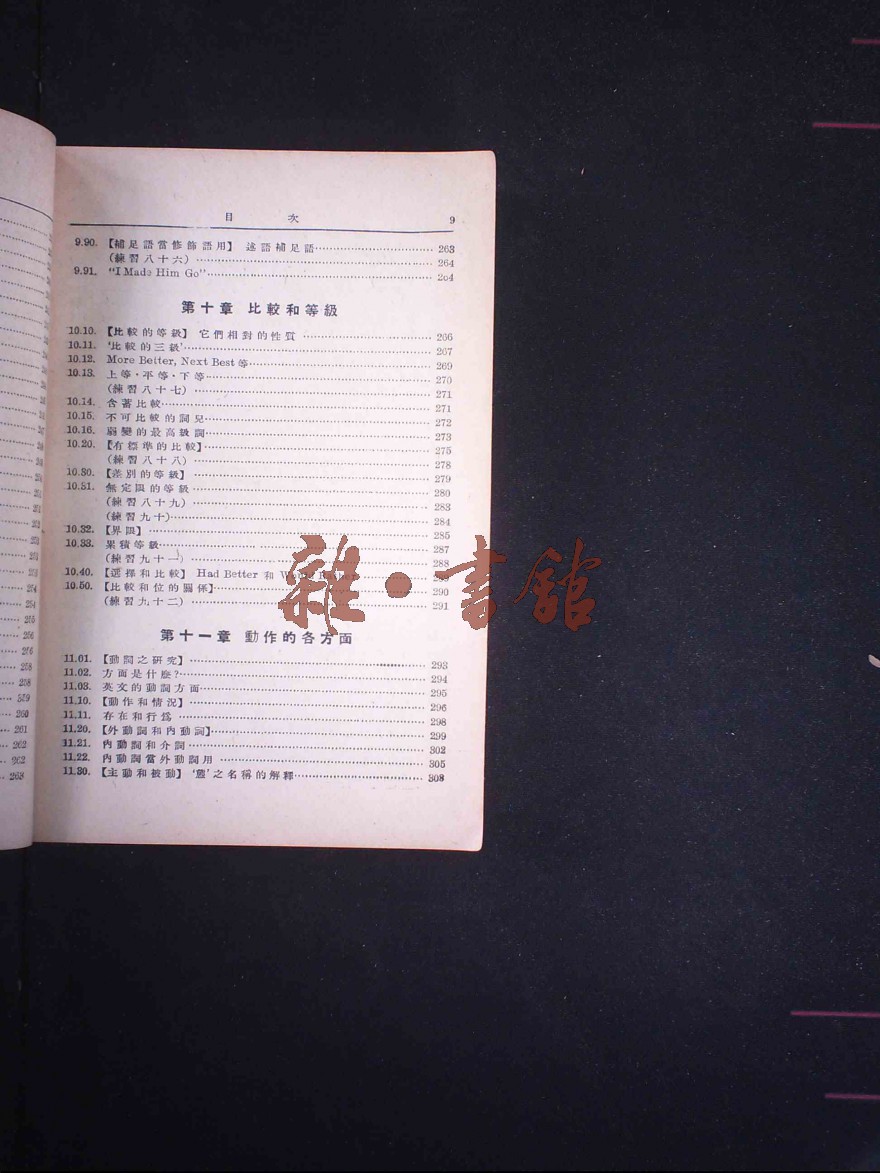 目 次 9
9.90. 【補足語當修飾語用】 述語補足語 263
(練習八十六) 264
9.91. “I Made Him Go” 264
第十章 比較和等級
10.10. 【比較的等級】 它們相對的性質 266
10.11. ‘比較的三級’ 267
10.12. More Better, Next Best 等 269
10.13. 上等·平等·下等 270
(練習八十七) 271
10.14. 含著比較 271
10.15. 不可比較的詞兒 272
10.16. 弱變的最高級詞 273
10.20. 【有標準的比較】 275
(練習八十八) 278
10.30. 【差別的等級】 279
10.31. 無定限的等級 280
(練習八十九) 283
(練習九十) 284
10.32. 【界限】 285
10.33. 累積等級 287
(練習九十一) 288
10.40. 【選擇和比較】 Had Better 和
10.50. 【比較和位的關係】 290
(練習九十二) 291
雜·書館
第十一章 動作的各方面
11.01. 【動詞之研究】 293
11.02. 方面是什麼? 294
11.03. 英文的動詞方面 295
11.10. 【動作和情況】 296
11.11. 存在和行爲 298
11.20. 【外動詞和內動詞】 299
11.21. 內動詞和介詞 302
11.22. 內動詞當外動詞用 305
11.30. 【主動和被動】 ‘態’之名稱的解釋 308
251
252
253
251
253
254
254
255
256
256
258
258
259
260
261
262
262
263